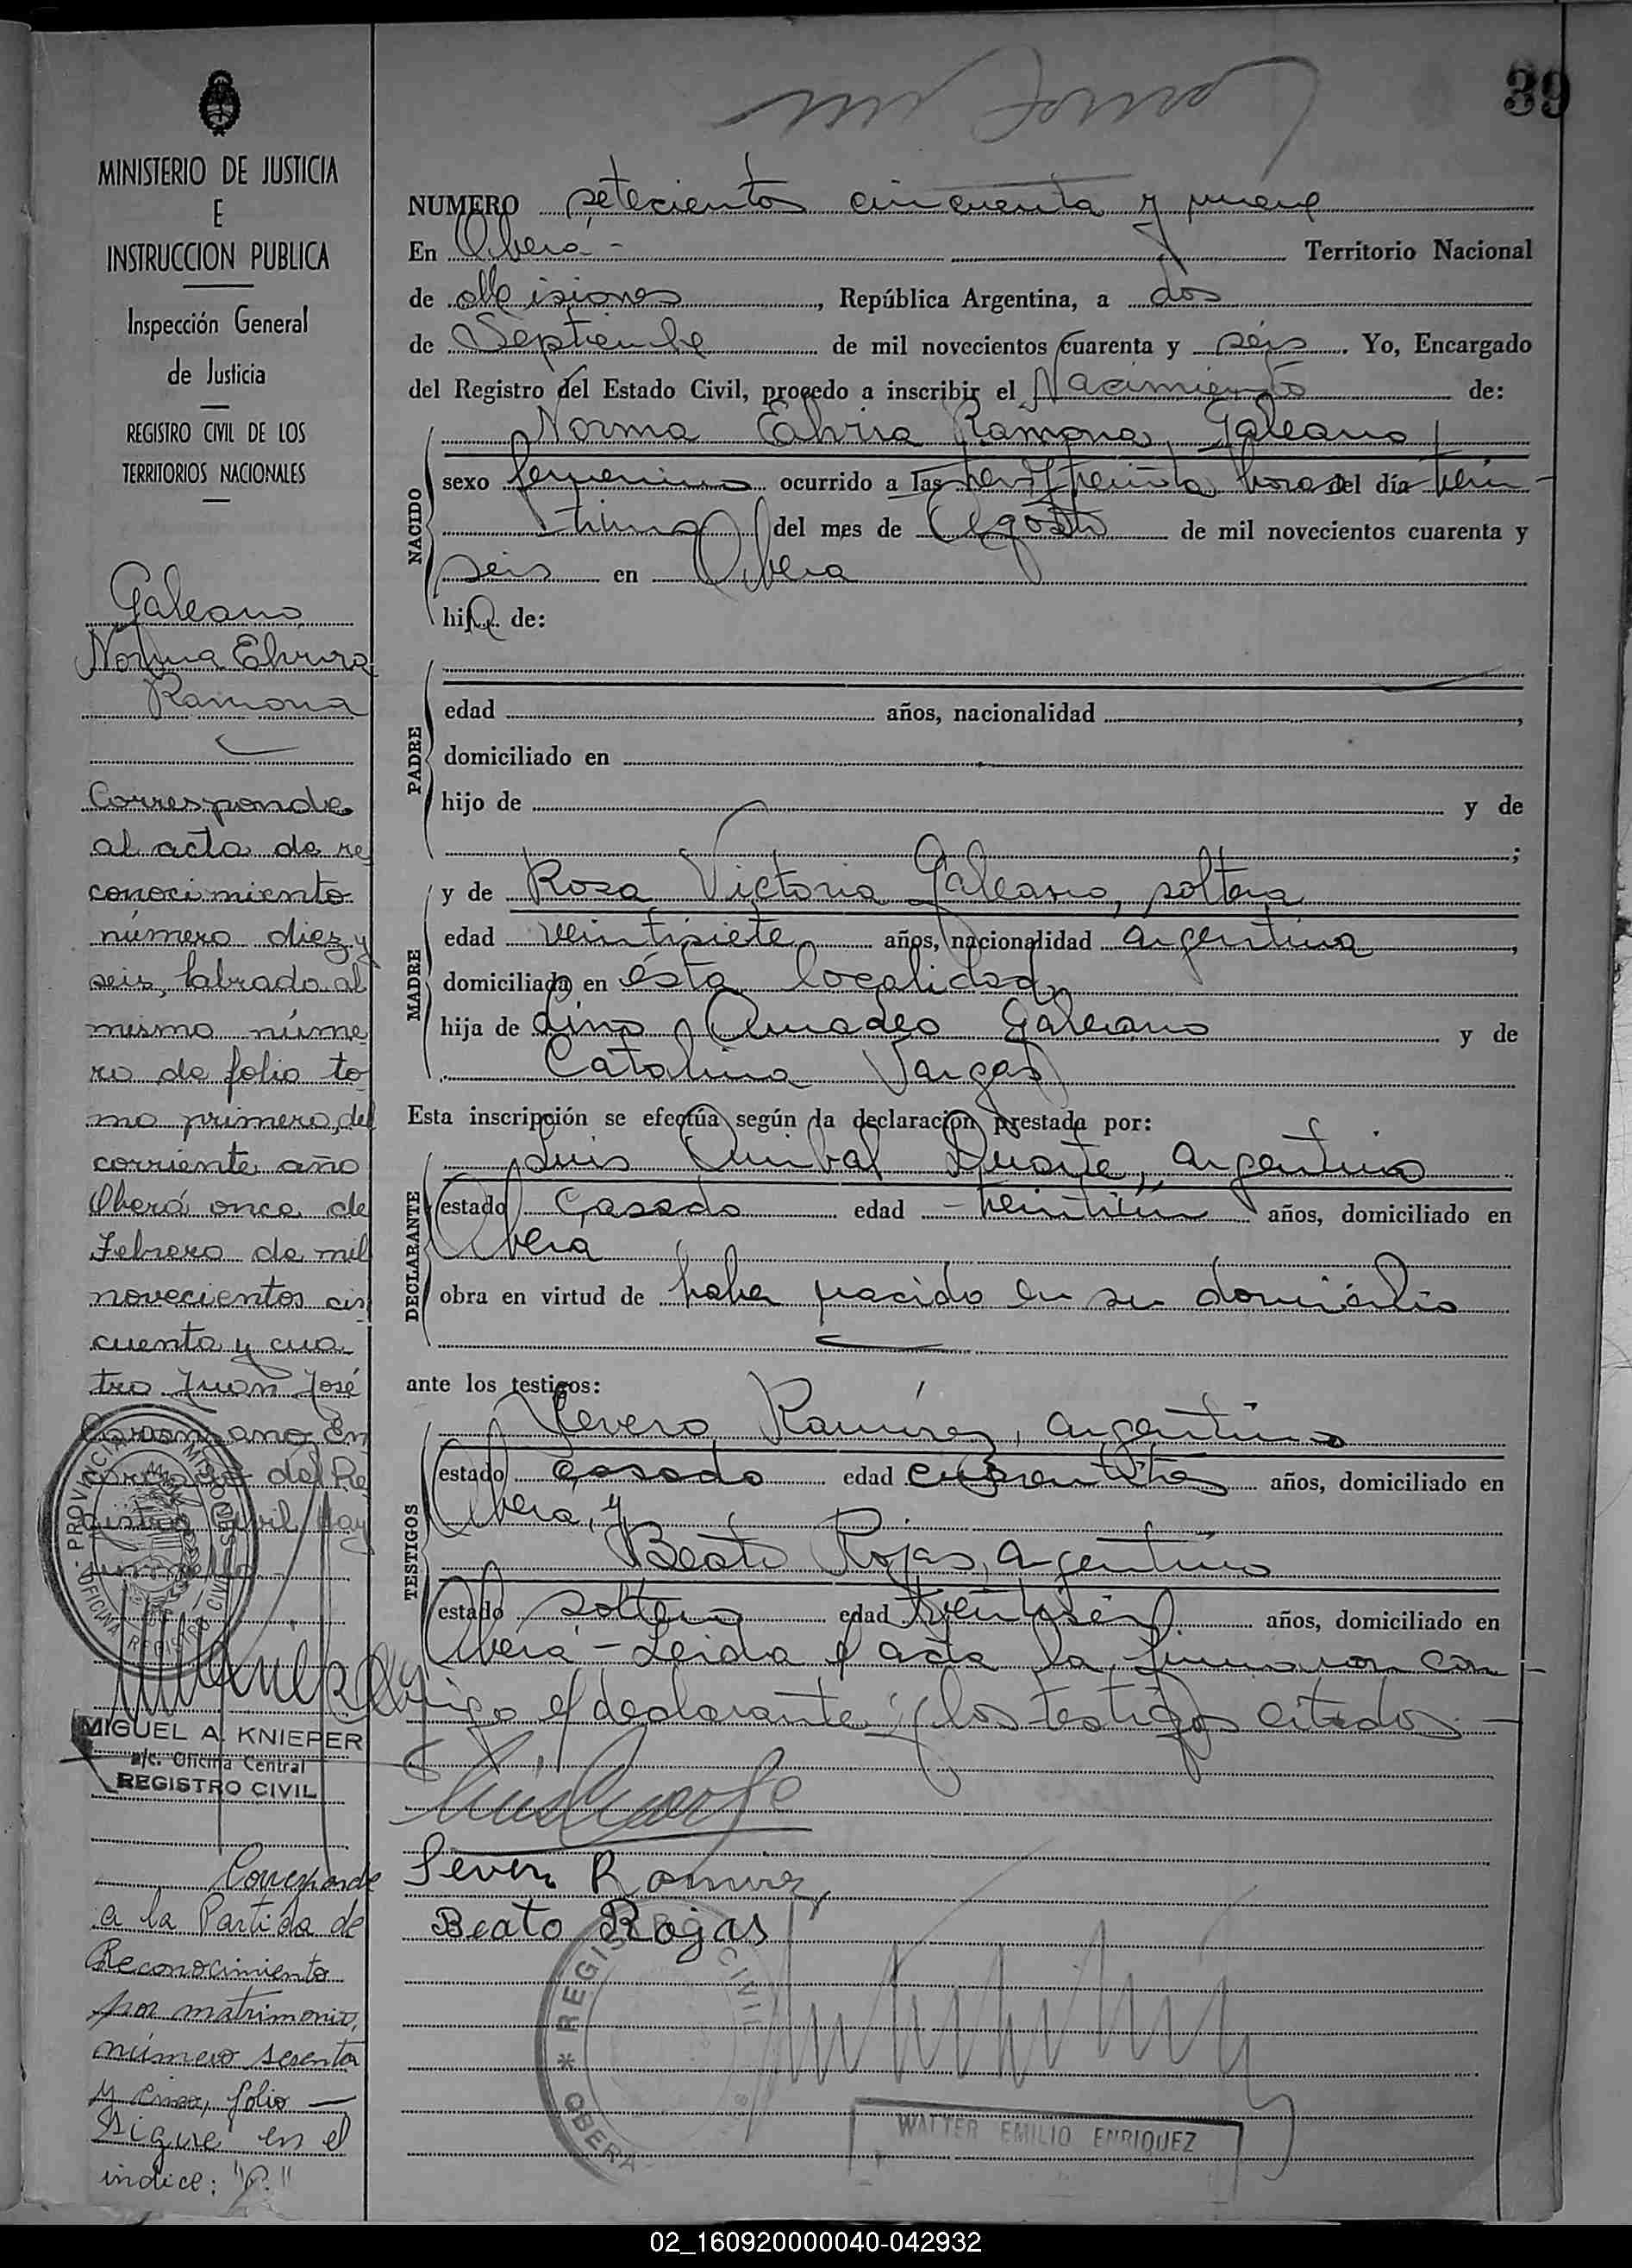 39
MINISTERIO DE JUSTICIA
E
INSTRUCCION PUBLICA
Inspección General
de Justicia
REGISTRO CIVIL DE LOS
TERRITORIOS NACIONALES
Galeano
Norma Elvira
Ramona
Corresponde
al acta de re
conocimiento
número diez y
seis, labrado al
mismo núme
ro de folio to
mo primero, del
corriente año
Oberá once de
Febrero de mil
novecientos cin
cuenta y cua
tro Juan José
En
del Re
Civil
PROVINCIA DE MISIONES
OFICINA REGISTRO CIVIL
MIGUEL A. KNIEPER
a/c. Oficina Central
REGISTRO CIVIL
Corresponde
a la Partida de
Reconocimiento
por matrimonio,
número sesenta
y cinco, folio —
Sigue en el
indice:
NUMERO setecientos cincuenta y nueve
En Oberá - Territorio Nacional
de Misiones, República Argentina, a dos
de Septiembre de mil novecientos cuarenta y séis. Yo, Encargado
del Registro del Estado Civil, procedo a inscribir el Nacimiento de:
NACIDO
Norma Elvira Ramona Galeano
sexo femenino ocurrido a las tres y treinta horas del día vein-
tiuno del mes de Agosto de mil novecientos cuarenta y
seis en Oberá
hija de:
PADRE
edad años, nacionalidad ,
domiciliado en
hijo de y de
;
MADRE
y de Rosa Victoria Galeano, soltera
edad veintisiete años, nacionalidad argentina,
domiciliada en ésta localidad,
hija de Lino Amadeo Galeano y de
Catalina Vargas
Esta inscripción se efectúa según la declaración prestada por:
DECLARANTE
Luis Anibal Duarte, argentino
estado Casado edad - años, domiciliado en
Oberá
obra en virtud de haber nacido en su domicilio
ante los testigos:
TESTIGOS
Severo Ramírez, argentino
estado Casado edad años, domiciliado en
Oberá, y
Beato Rojas, argentino
estado soltero edad años, domiciliado en
Oberá - Leida el acta la firmaron con-
migo el declarante y los testigos citados -
Severo Ramirez
Beato Rojas
REGISTRO CIVIL
* OBERA
WALTER EMILIO ENRIQUEZ
02_160920000040-042932